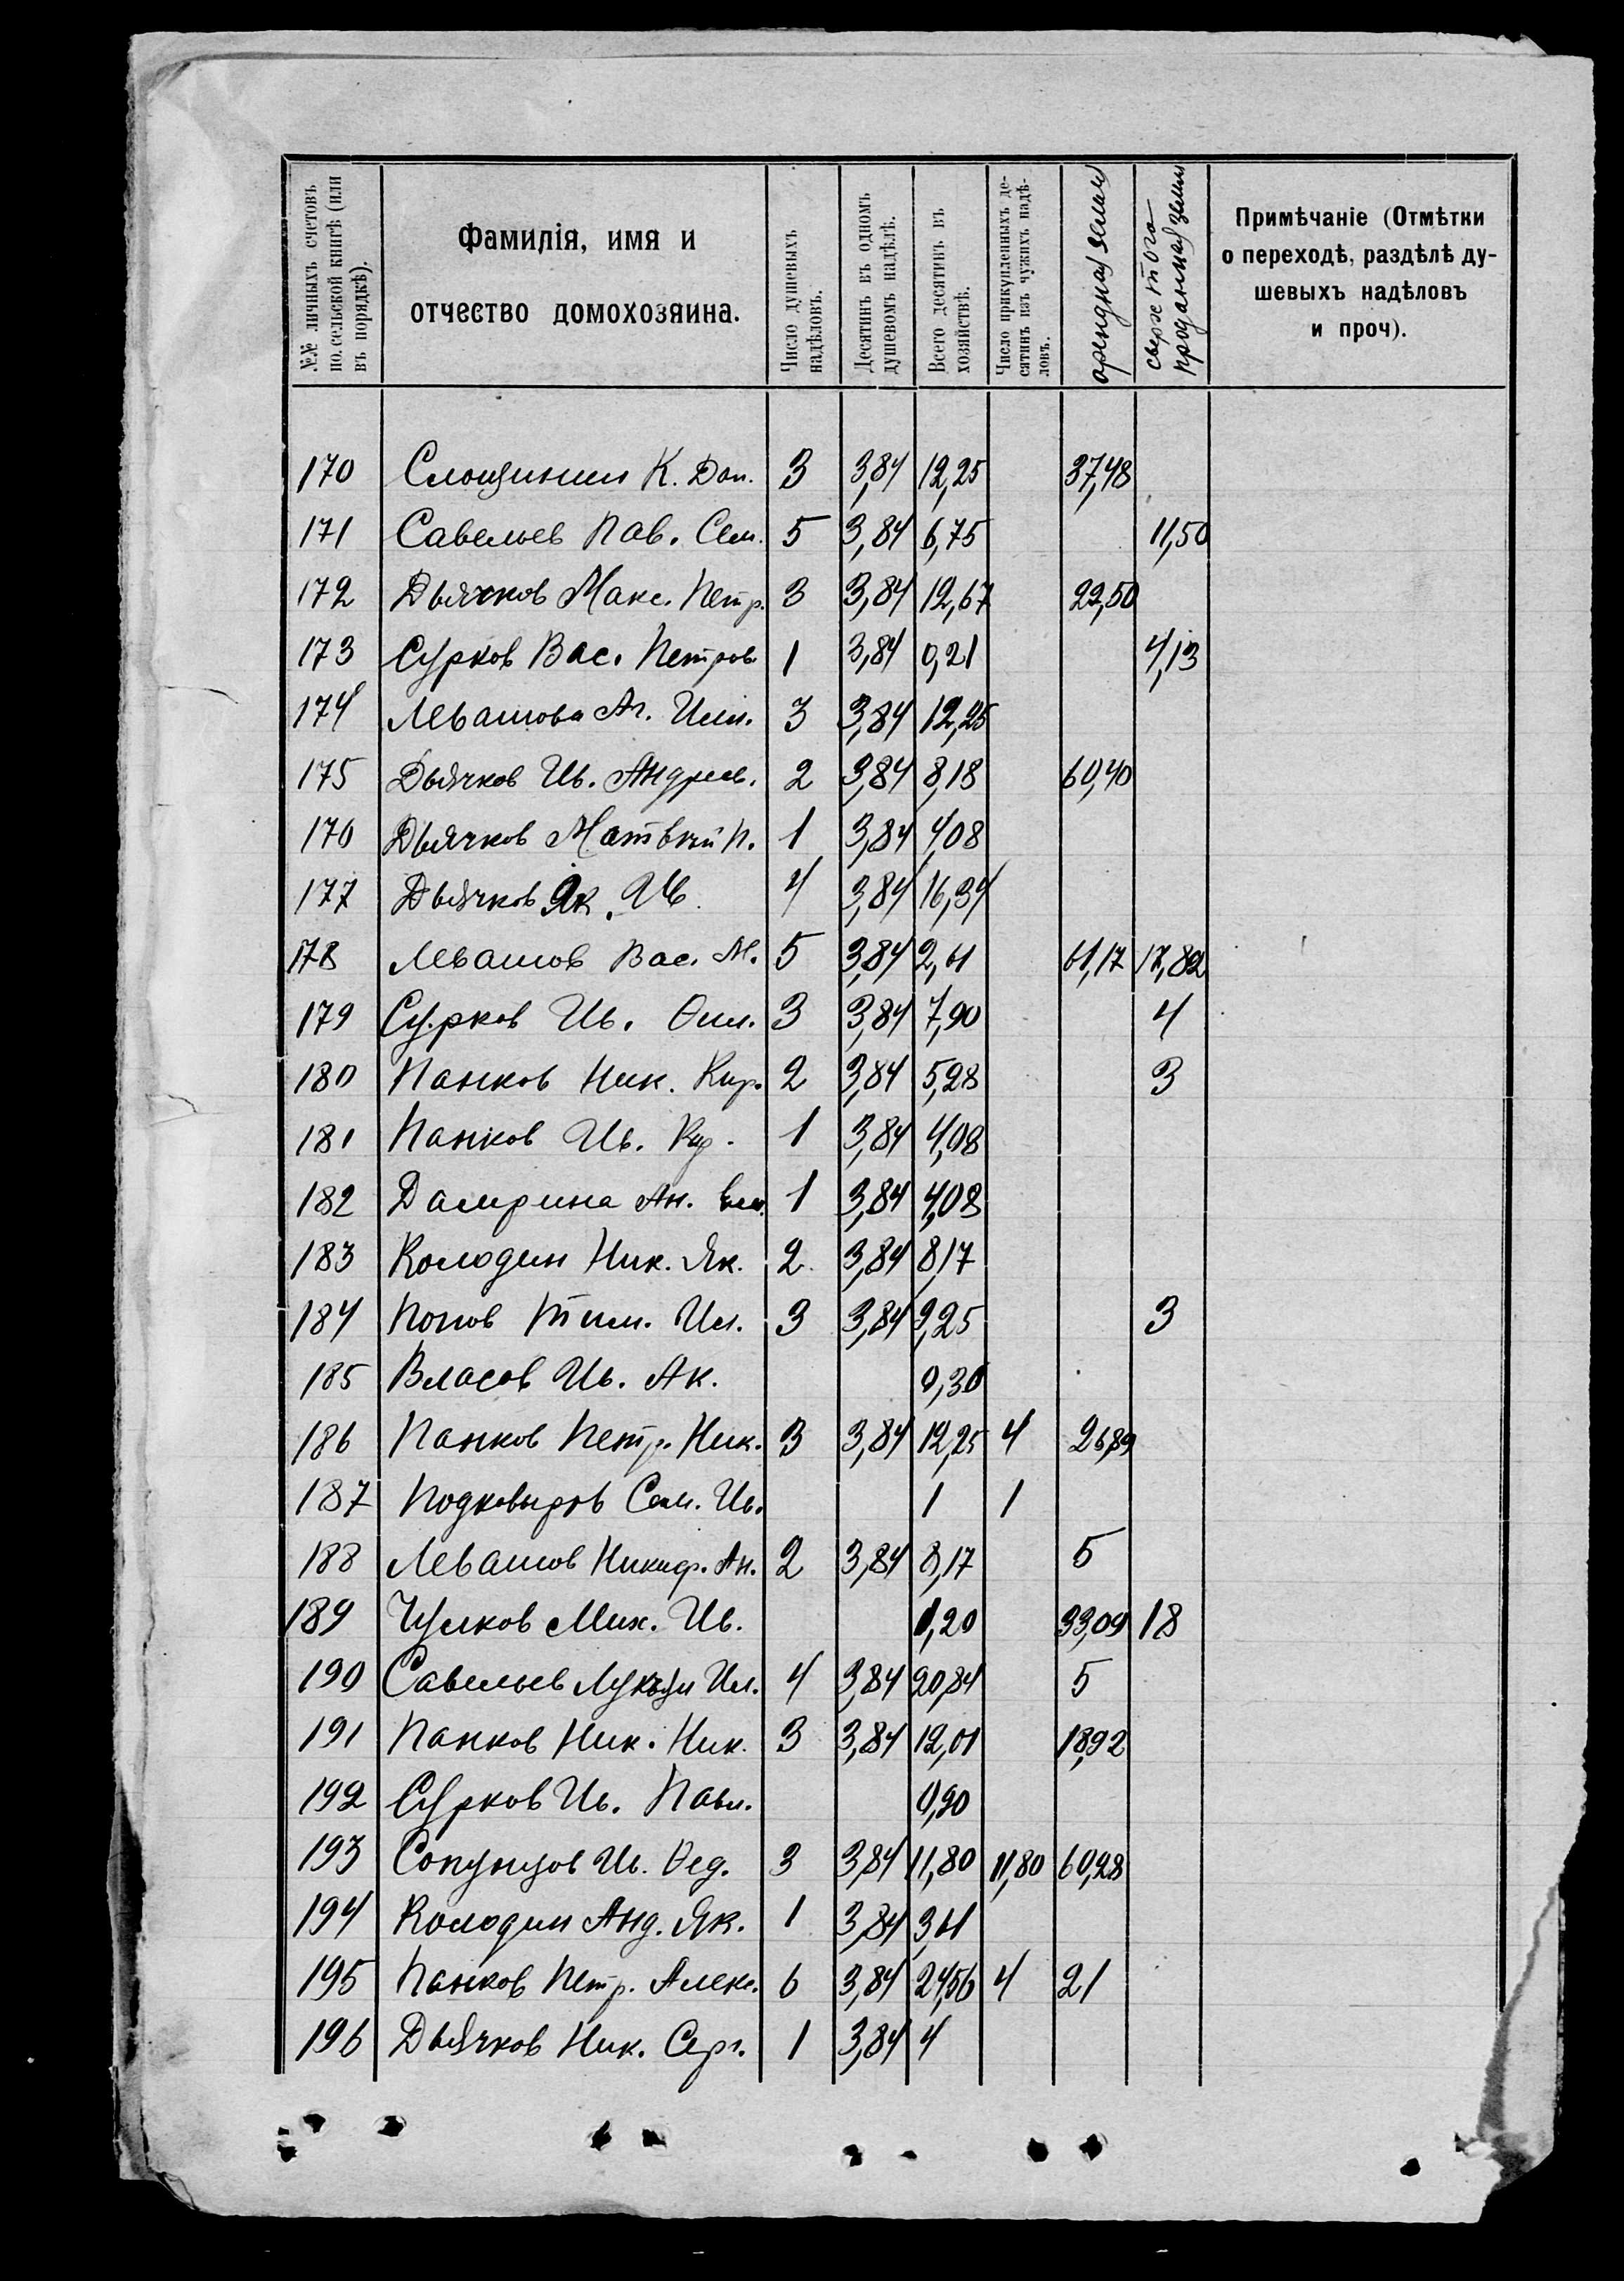 №№ личныхъ счетовъ по сельской книгѣ (или въ порядкѣ).
Фамилія, имя и отчество домохозяина.
Число душевыхъ надѣловъ.
Десятинъ въ одномъ душевомъ надѣлѣ.
Всего десятинъ въ хозяйствѣ.
Число прикупленныхъ десятинъ изъ чужихъ надѣловъ.
арендная земля
сверх того проданная земля
Примѣчаніе (Отмѣтки о переходѣ, раздѣлѣ душевыхъ надѣловъ и проч).
170 К. Дан. 3 3,84 12,25 37,48
171 Савельев Пав. Сем. 5 3,84 6,75 11,50
172 Дьячков Макс. Петр. 3 3,84 12,67 22,50
173 Сурков Вас. Петров. 1 3,84 0,21 4,13
174 Левашова 3 3,84 12,25
175 Дьячков Ив. Андреев. 2 3,84 8,18 60,40
176 Дьячков Матвей П. 1 3,84 4,08
177 Дьячков Як. Ив. 4 3,84 16,34
178 Левашов Вас. М. 5 3,84 2,61 61,17 17,82
179 Сурков Ив. 3 3,84 7,90 4
180 Панков Ник. Кир. 2 3,84 5,28 3
181 Панков Ив. Кир. 1 3,84 4,08
182 Ан. 1 3,84 4,08
183 Колодин Ник. Як. 2 3,84 8,17
184 Попов Тим. Ил. 3 3,84 9,25 3
185 Власов Ив. Ак. 0,30
186 Панков Петр. Ник. 3 3,84 12,25 4 26,89
187 Подковыров Сем. Ив. 1 1
188 Левашов Никифр. Ан. 2 3,84 8,17 5
189 Чулков Мих. Ив. 0,20 33,09 18
190 Савельев Лукьян Ил. 4 3,84 20,84 5
191 Панков Ник. Ник. 3 3,84 12,01 18,92
192 Сурков Ив. Павл. 0,20
193 Сопунцов Ив. Фед. 3 3,84 11,80 11,80 60,28
194 Колодин Анд. Як. 1 3,84 3,61
195 Панков Петр. Алекс. 6 3,84 24,56 4 21
196 Дьячков Ник. Серг. 1 3,84 4